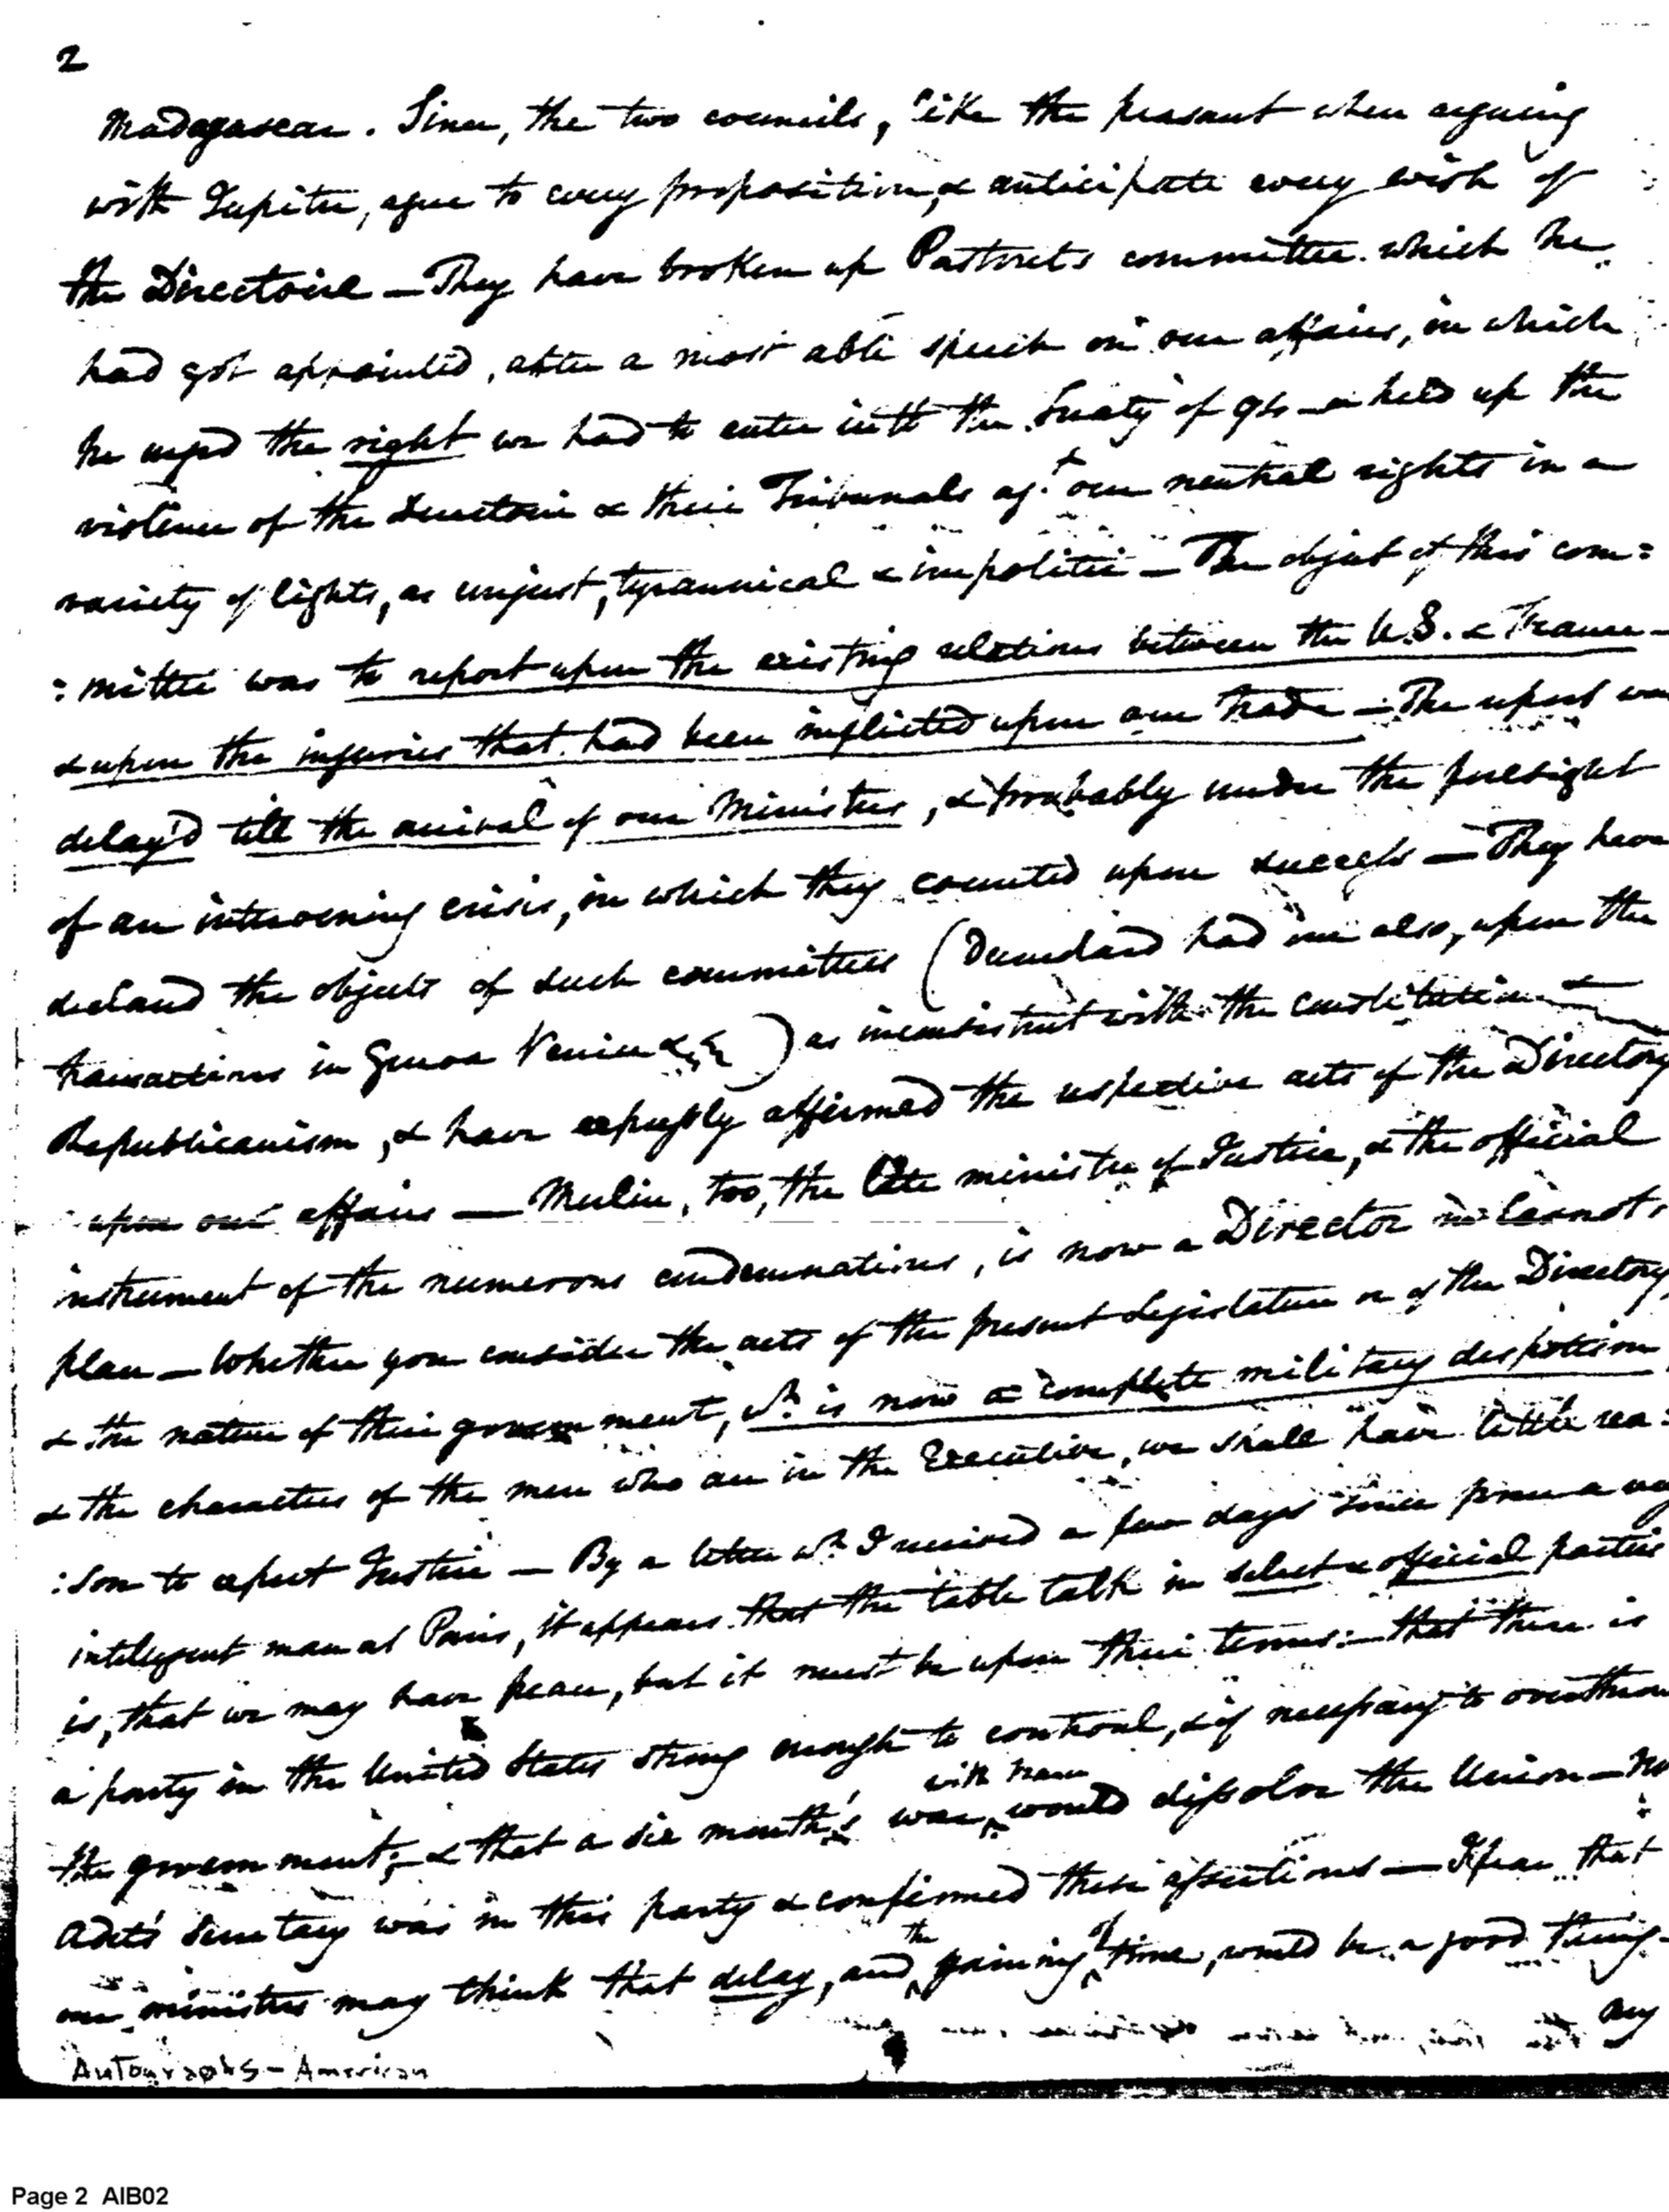 2
Madagascar. Since, the two councils, like the peasant when arguing
with Jupiter, agree to every proposition, & anticipate every wish of
the Directoire — They have broken up Pastoret's committee which he
had got appointed, after a most able speech on our affairs, in which
he urged the right we had to enter into the Treaty of 94 — & held up the
violence of the Directoire & their Tribunals ag.t our neutral rights in a
variety of lights, as unjust, tyrannical & impolitic — The object of this com=
=mittee was to report upon the existing relations between the U.S. & France —
& upon the injuries that had been inflicted upon our trade — The report was
delay'd till the arrival of our Ministers, & probably under the foresight
of an intervening crisis, in which they counted upon success — They have
declared the objects of such committees (Dumolard had one also, upon the
transactions in Genoa Venice &c &c) as inconsistent with the constitution &
Republicanism, & have expressly affirmed the respective acts of the Directory
upon our affairs — Merlin, too, the late minister of Justice, & the official
instrument of the numerous condemnations, is now a Director in Carnot's
place — Whether you consider the acts of the present Legislature or of the Directory,
& the nature of their government, wh. is now a complete military despotism,
& the characters of the men who are in the Executive, we shall have little rea=
=son to expect Justice — By a letter wh. I received a few days since from a very
intelligent man at Paris, it appears that the table talk in select & official parties
is, that we may have peace, but it must be upon their terms: — that there is
a party in the United States strong enough to controul, & if necessary to overthrow
the government; — & that a six month's war, with France would dissolve the Union — 
Adet's Secretary was in this party & confirmed these assertions — I fear that
our ministers may think that delay, and the gaining of time, would be a good thing —
any
Autographs - American
Page 2 AIB02